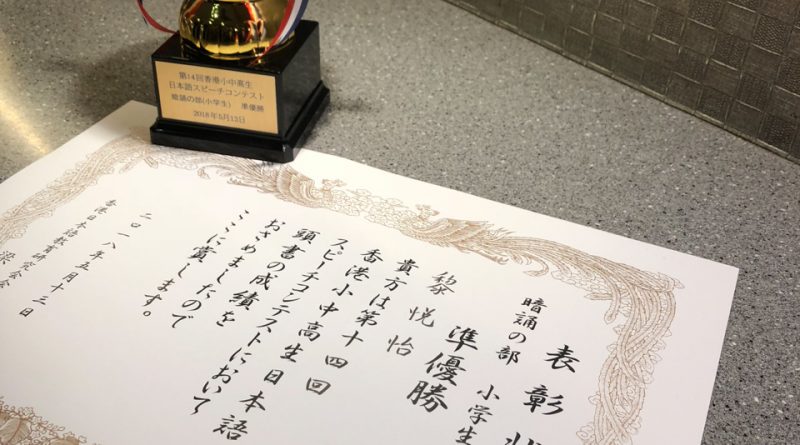 第14回香港小中高生
日本語スピーチコンテスト
暗誦の部(小学生) 準優勝
2018年5月13日
表彰状
暗誦の部 小学生
準優勝
黎悦怡
貴方は第十四回
香港小中高生日本語
スピーチコンテストにおいて
頭書の成績を
おさめましたので
ここに賞します。
二〇一八年五月十三日
香港日本語教育研究会